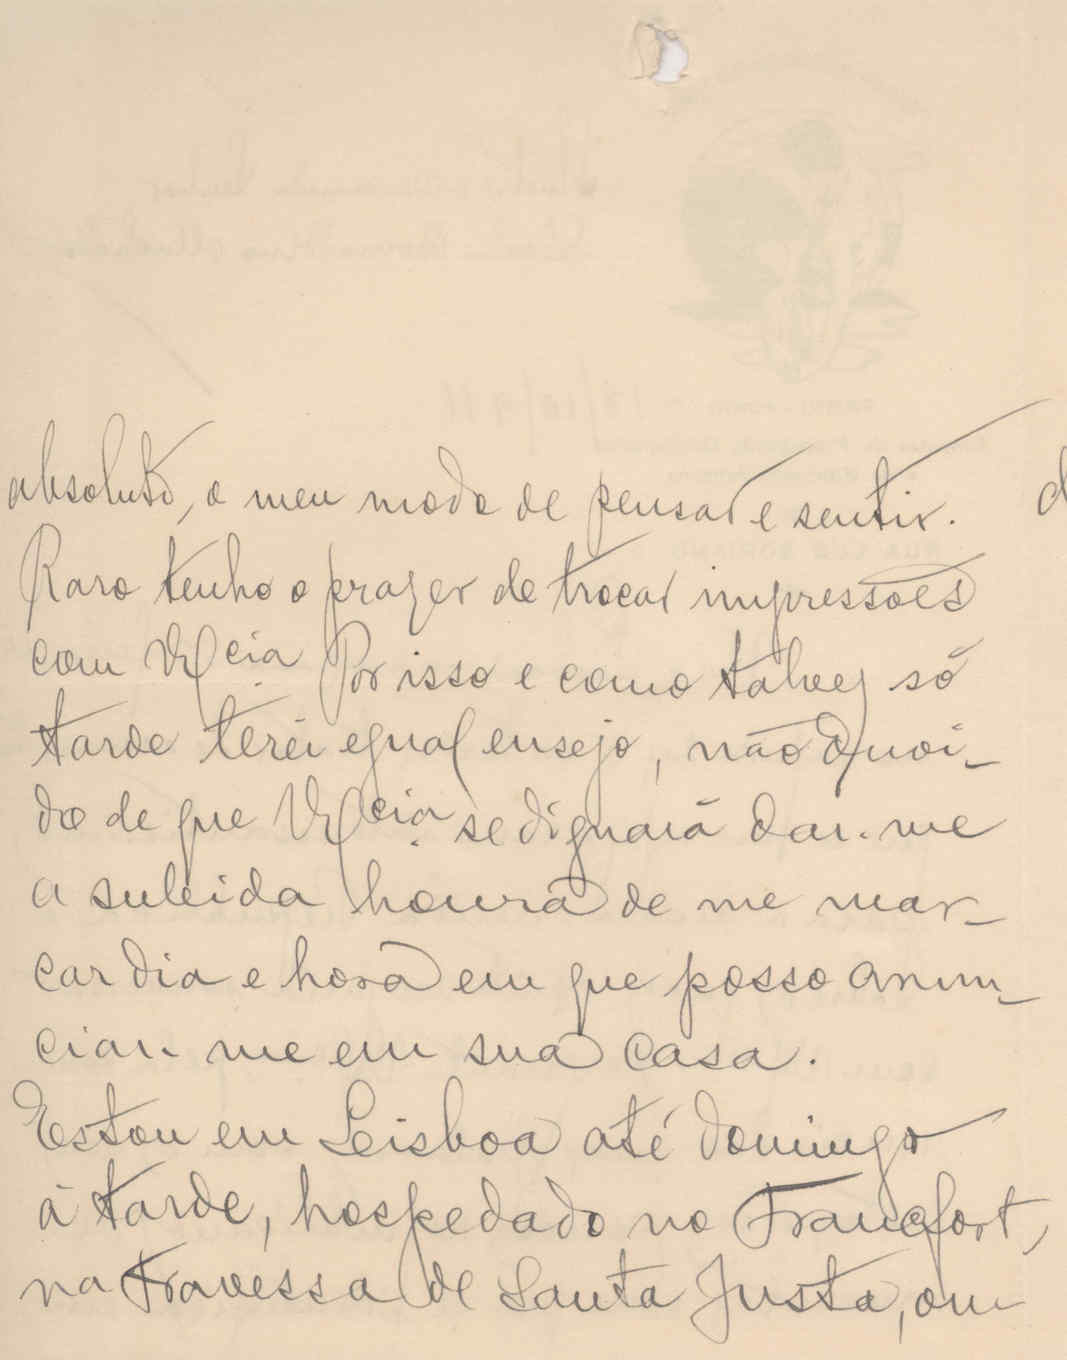 absoluto, o meu modo de pensar e sentir.
Raro tenho o prazer de trocar impressões
com V. Ex.cia. Por isso e como talvez só
tarde terei egual ensejo, não duvi-
do de que V. Ex.cia. se dignará dar-me
a subida honra de me mar-
car dia e hora em que posso anun-
ciar-me em sua casa.
Estou em Lisboa até domingo
á tarde, hospedado no Francfort,
na Travessa de Santa Justa, on